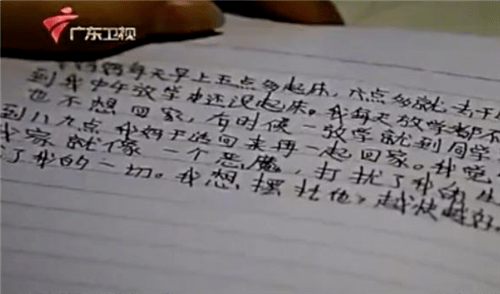 广东卫视
妈每天早上五点多起床，六点多就去干
到我中午放学还没起床。我每天放学都不
也不想回家，有时候一放学就到同学
到八九点我妈干活回来再一起回家。我觉
我家就像一个恶魔，打扰了我的生
了我的一切。我想摆壮他》越快越好